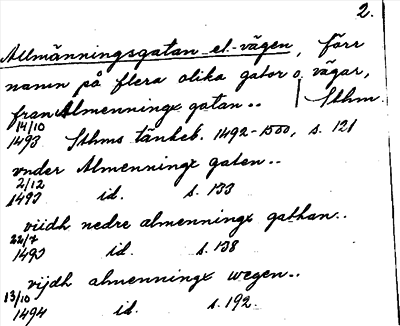 2.
Allmänningsgatan el. vägen, förr
namn på flera olika gator o. vägar,
fran Almenningx gatan.. | Sthm.
14/10
1493 Sthms tänkeb. 1492-1500, s. 121
vnder Almenningx gaten..
2/12
1493 id. s. 133
viidh nedre almenningx gathan..
22/7
1493 id. s. 138
vijdh almenningx wegen..
13/10
1494 id. s. 192.